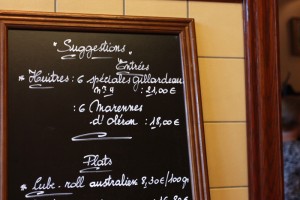 Suggestions
Entrées
* Huîtres : 6 spéciales Gillardeau
n°2 : 21,00 €
: 6 Marennes
d'oléron : 18,00 €
Plats
* Cube-roll australien 8,30€/100gr